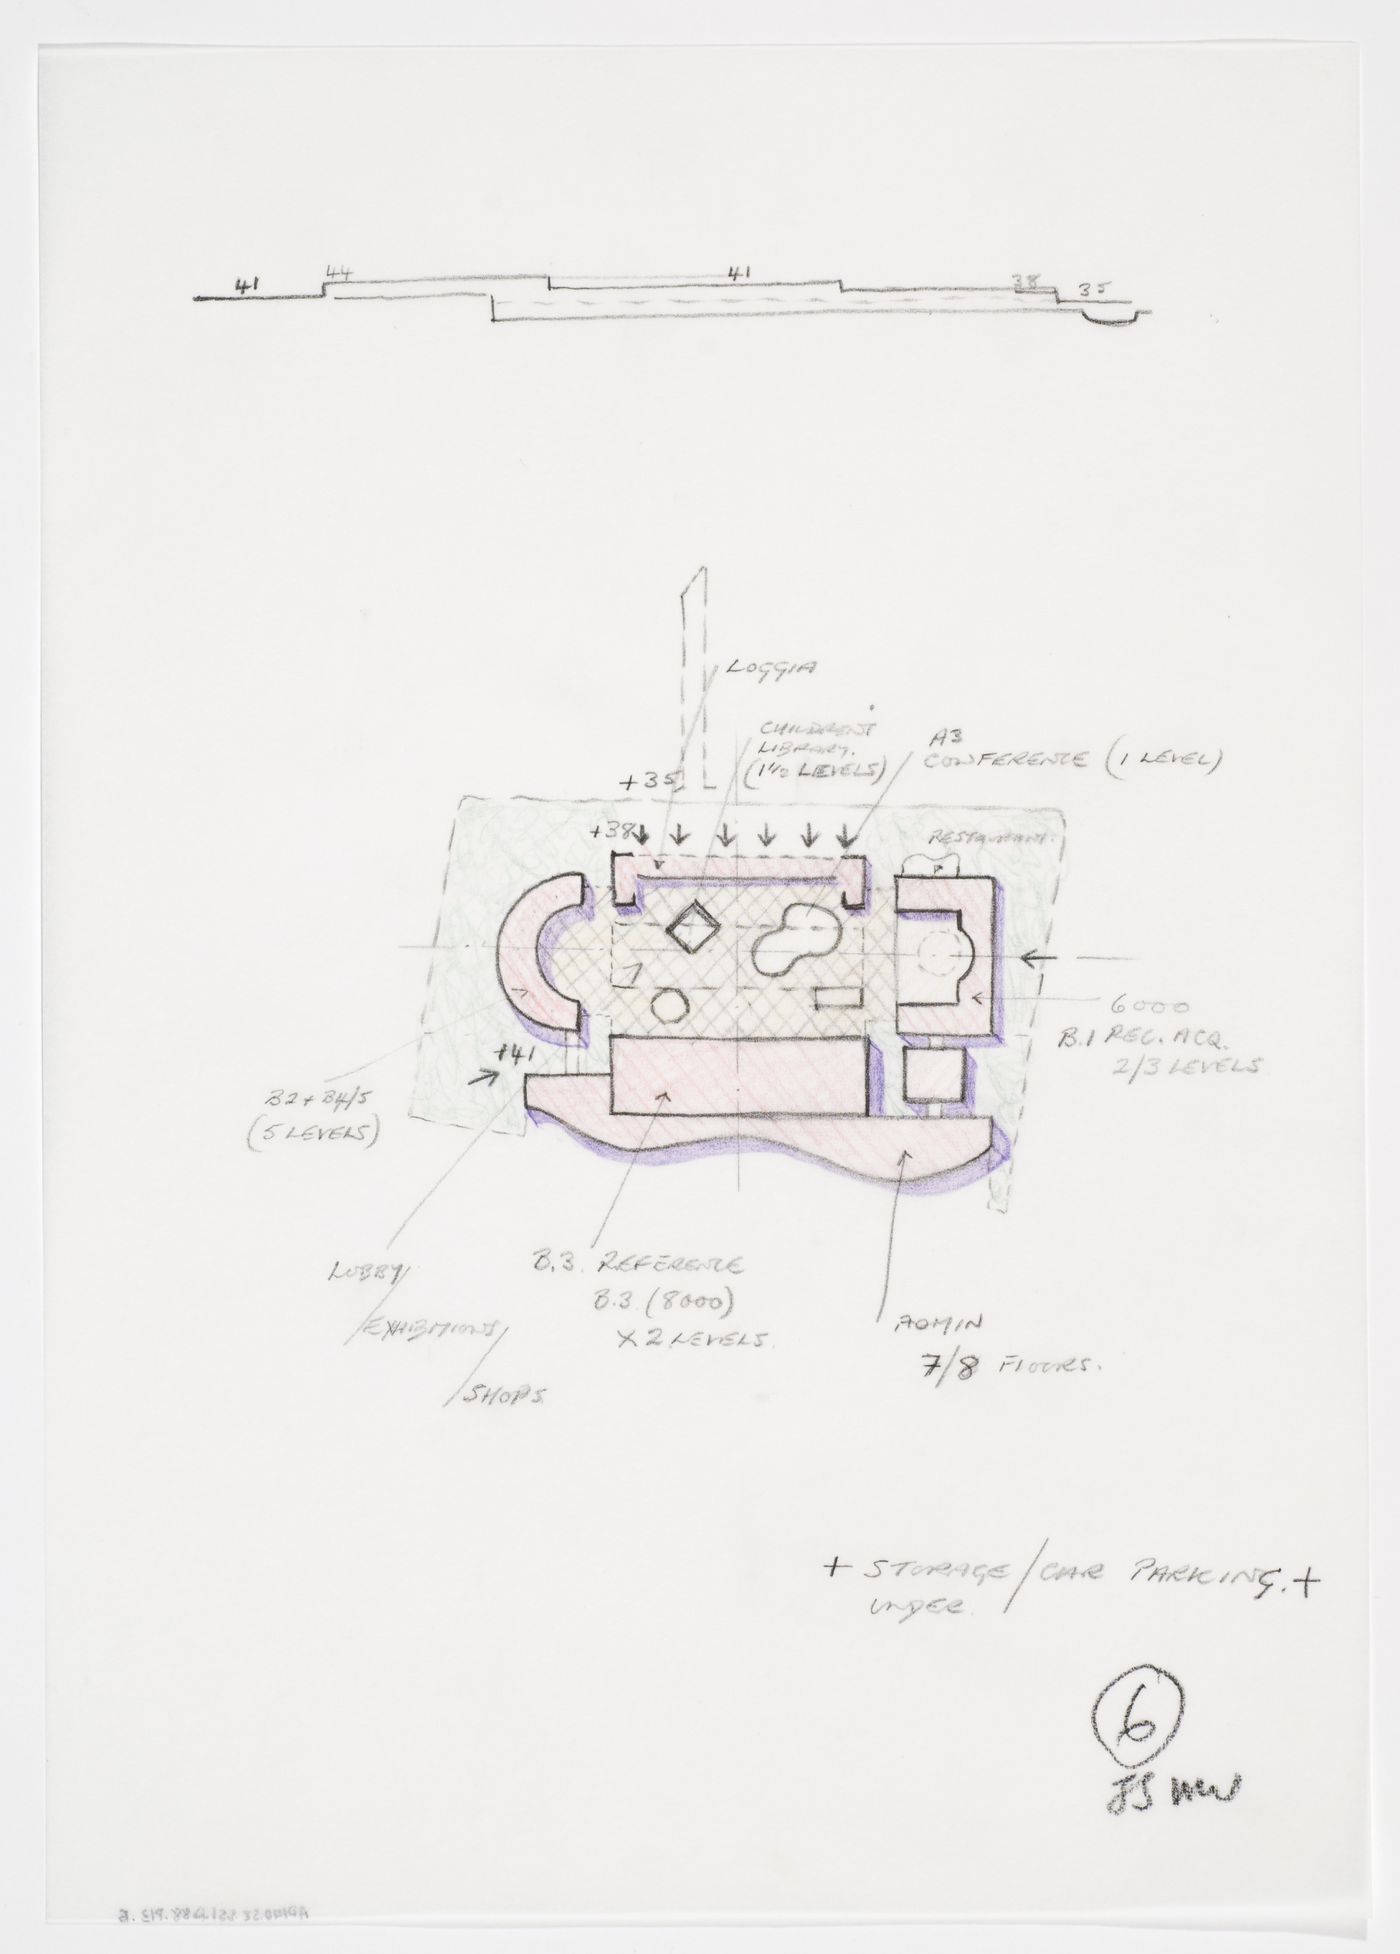 41
44
41
38
35
LOGGIA
CHILDREN'S
LIBRARY.
(1½ LEVELS)
A3
CONFERENCE (1 LEVEL)
+35
+38
RESTAURANT.
6000
B.1 REC. ACQ.
2/3 LEVELS
+41
B2 + B4/5
(5 LEVELS)
LOBBY/
/EXHIBITIONS/
/SHOPS
B.3. REFERENCE
B.3. (8000)
X 2 LEVELS.
ADMIN
7/8 FLOORS.
+ STORAGE / CAR PARKING. +
UNDER.
6
JS